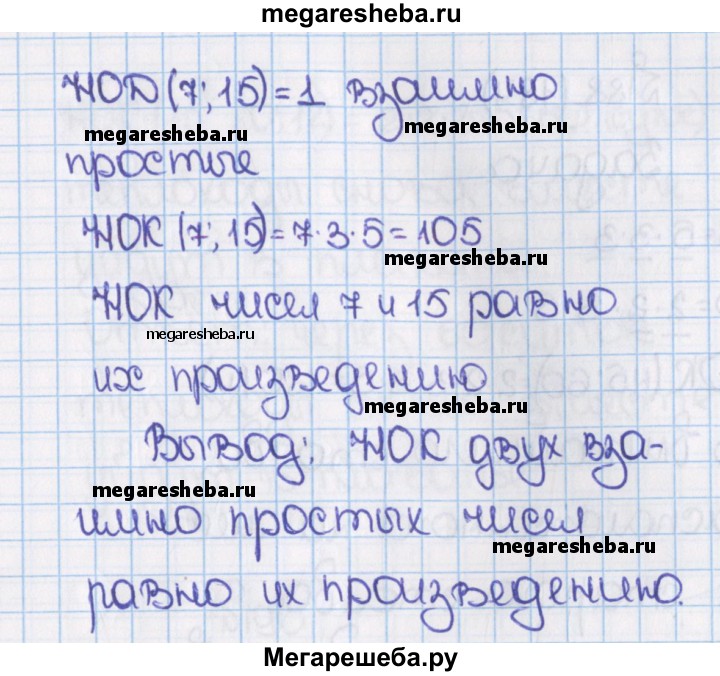 megaresheba.ru
НОД (7; 15) = 1 взаимно
megaresheba.ru megaresheba.ru
простые
НОК (7; 15) = 7·3·5 = 105
megaresheba.ru
НОК чисел 7 и 15 равно
megaresheba.ru
их произведению
megaresheba.ru
Вывод: НОК двух вза-
megaresheba.ru
имно простых чисел
megaresheba.ru
равно их произведению.
Мегарешеба.ру